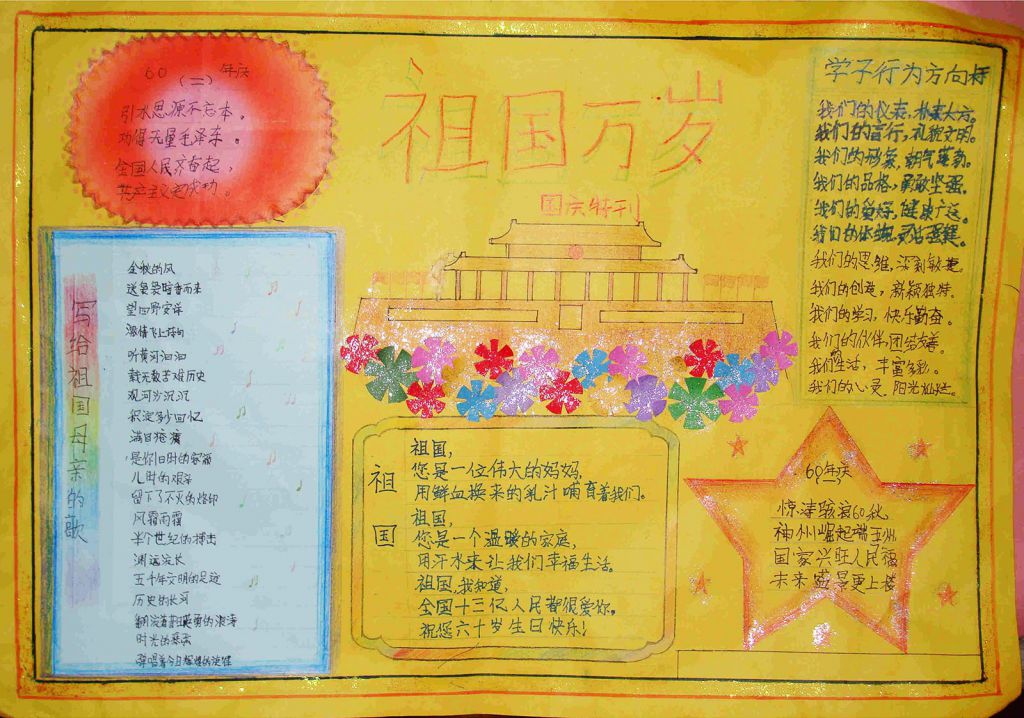 60年庆
(二)
引水思源不忘本。
功得无量毛泽东。
全国人民齐奋起,
共产主义更成功。
祖国万岁
国庆特刊
学子行为方向标
我们的仪表,朴素大方。
我们的言行,礼貌文明。
我们的形象,朝气蓬勃。
我们的品格,勇敢坚强。
我们的爱好,健康广泛。
我们的体魄,灵活强健。
我们的思维,深刻敏捷。
我们的创意,新颖独特。
我们的学习,快乐勤奋。
我们的伙伴,团结友善。
我们的生活,丰富多彩。
我们的心灵,阳光灿烂。
写给祖国母亲的歌
金秋的风
送袅袅暗香而来
望四野安详
激情飞上诗句
听黄河汩汩
载无数苦难历史
观河沙沉沉
积淀多少回忆
满目疮痍
是你旧时的容颜
儿时的艰辛
留下了不灭的烙印
风霜雨霜
半个世纪的搏击
渊远流长
五千年文明的足迹
历史的长河
翻滚着英勇的浪涛
时光的乘客
弹唱着今日辉煌的旋律
祖国
祖国,
您是一位伟大的妈妈,
用鲜血换来的乳汁哺育着我们。
祖国,
您是一个温暖的家庭,
用汗水来让我们幸福生活。
祖国,我知道,
全国十三亿人民都很爱你。
祝您六十岁生日快乐!
60年庆
惊涛骇浪60秋,
神州崛起端五洲
国家兴旺人民福
未来盛景更上楼